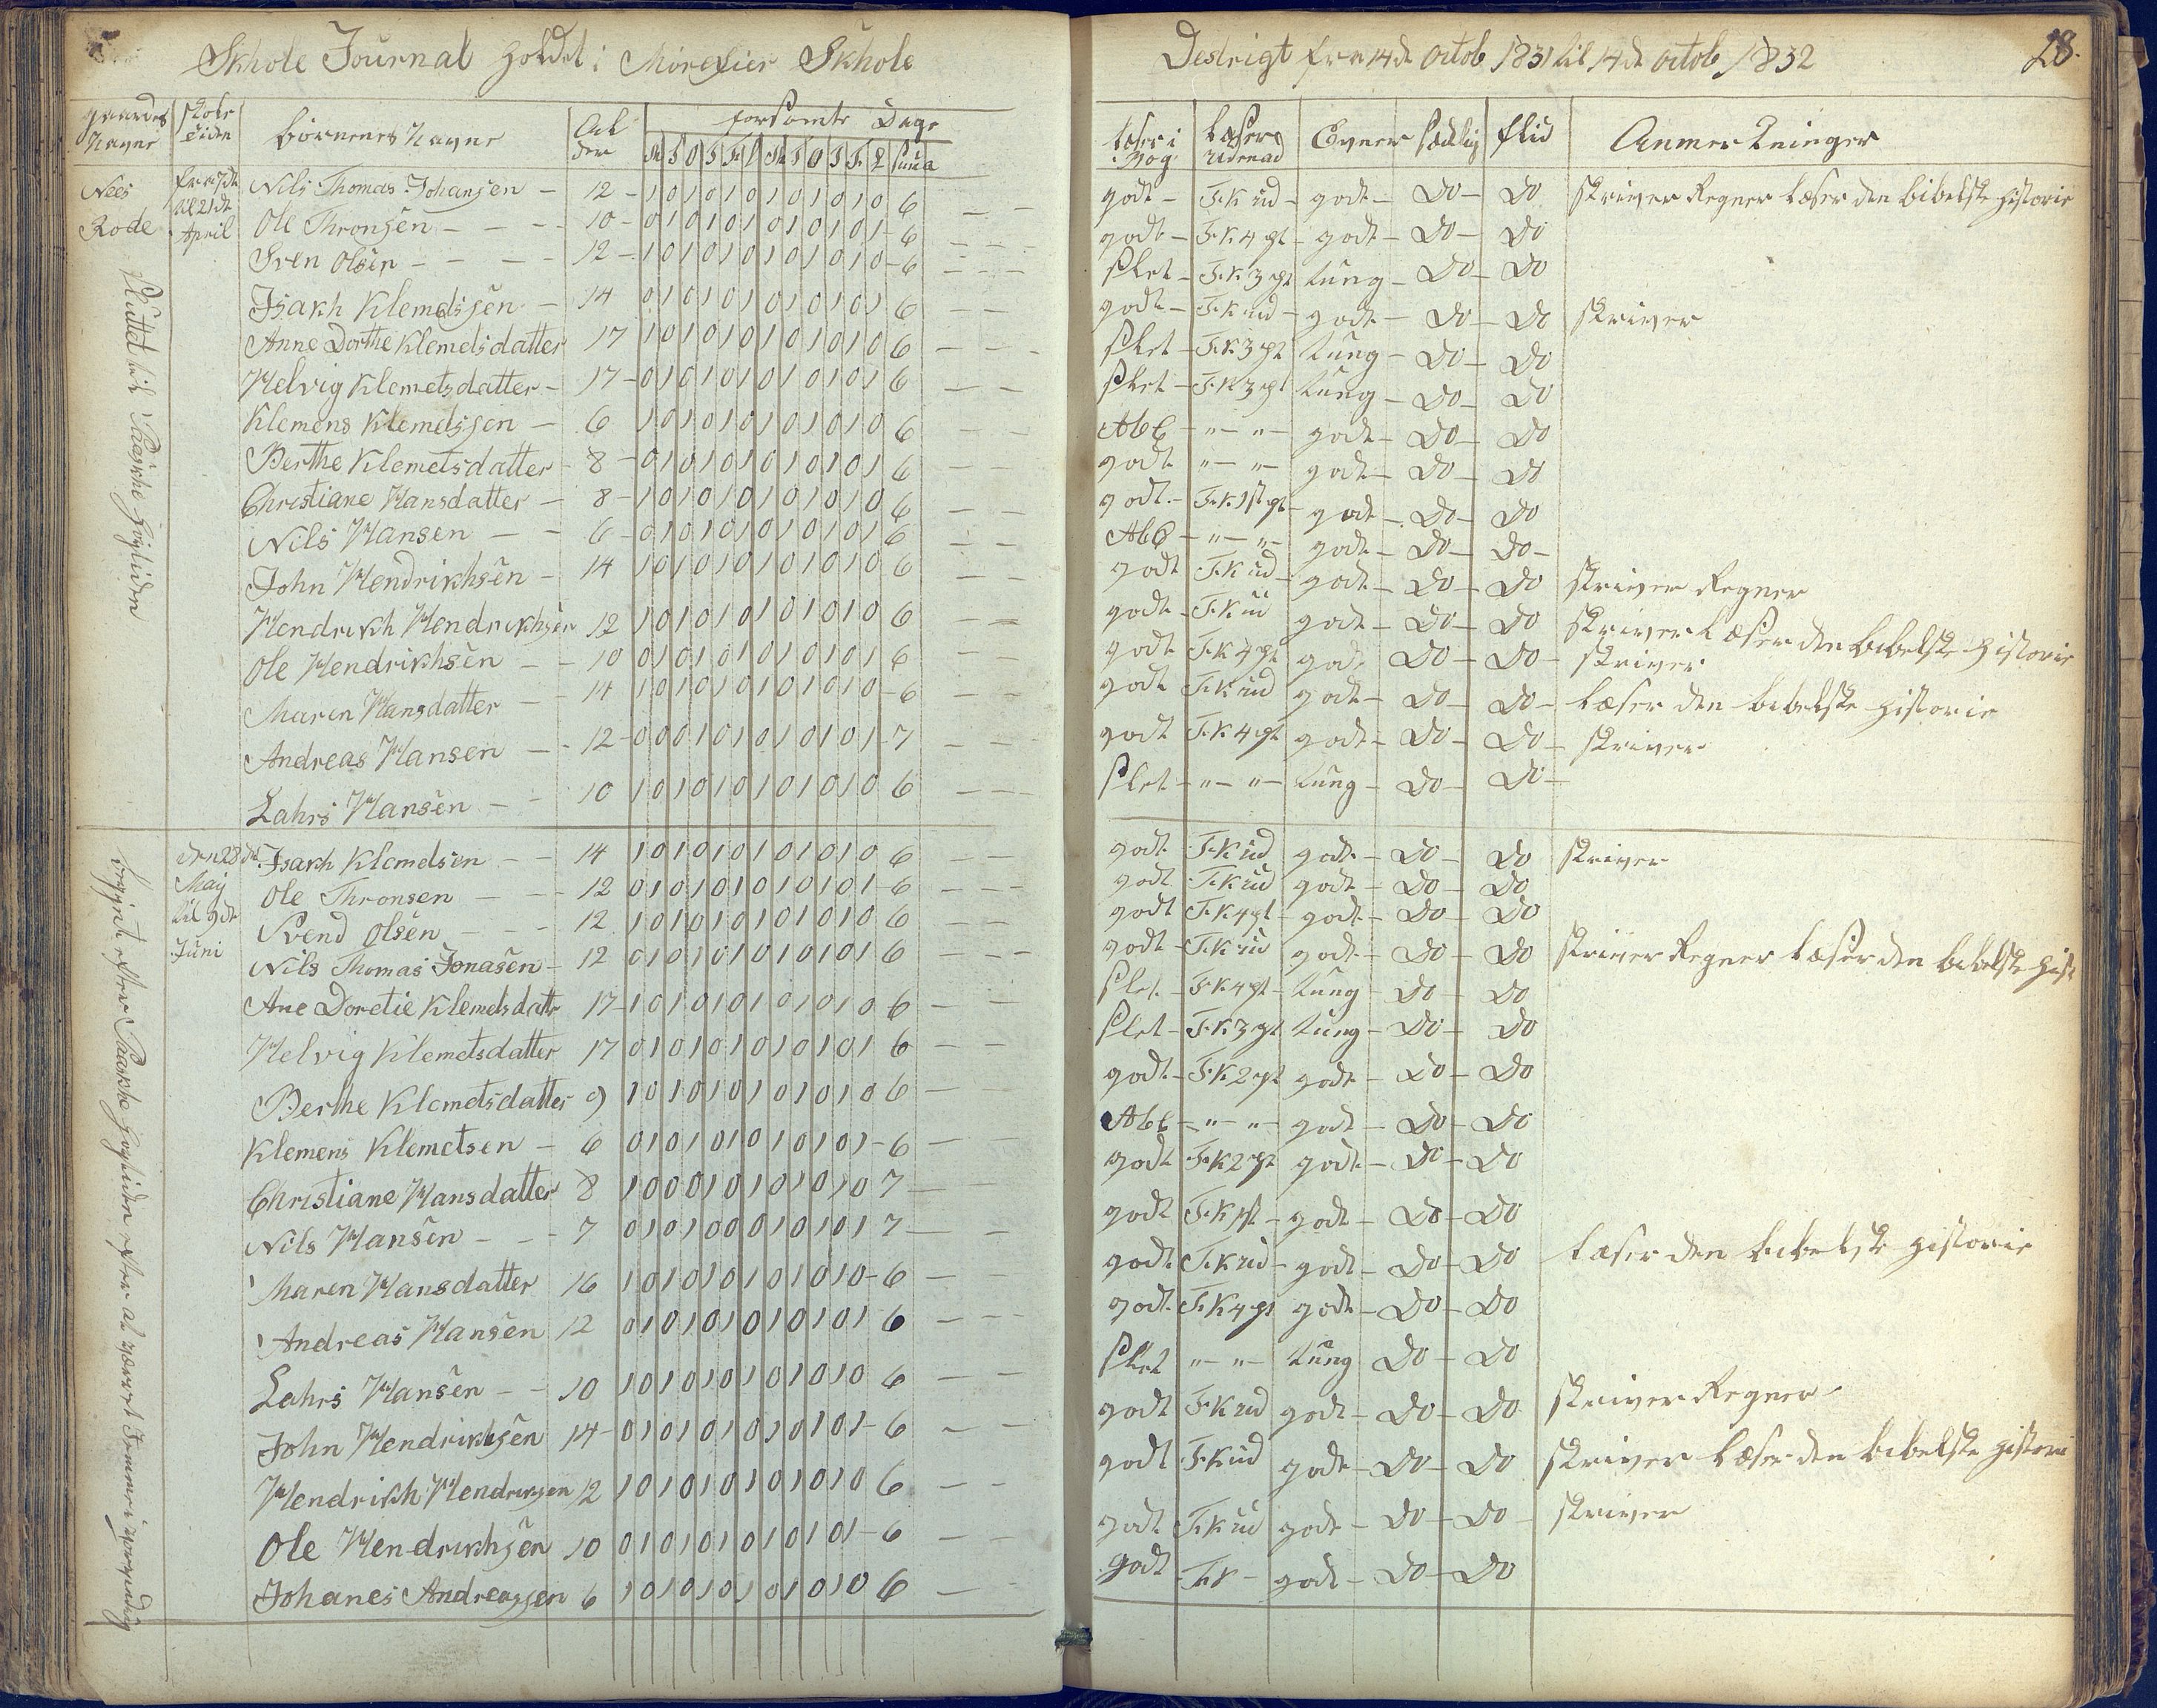 Skhole Journal holdet i Morefier Skhole Destrigt fra 14de Octob 1831 til 14de Octob 1832 28.
gaardes Navne | Skole Tiden | Børnenes Navne | Alder | Forsømte Dage | Læser i Bog | Læser udenad | Evner | Sædelig | Flid | Anmerkninger
M T O T F L M T O T F L Suma
Nees Rode
til 21de April
Sluttet til Paaske Høytiden
Nils Thomas Johansen – 12 – 1 0 1 0 1 0 1 0 1 0 1 0 6 godt – F.K ud – godt – Do – Do skriver Regner Læser den bibelske Historie
Ole Thronsen – 10 – 0 1 0 1 0 1 0 1 0 1 0 1 – 6 godt – F.K 4 pt – godt – Do – Do
Sven Olsen – 12 – 1 0 1 0 1 0 1 0 1 0 1 0 – 6 slet – F.K. 3 pt tung – Do – Do
Isakh Klemetssen – 14 0 1 0 1 0 1 0 1 0 1 0 1 6 godt – F.K ud – godt – Do – Do skriver
Anne Dorthe Klemetsdatter 17 1 0 1 0 1 0 1 0 1 0 1 0 6 slet – F.K 3 pt tung – Do – Do
Helvig Klemetsdatter – 17 – 0 1 0 1 0 1 0 1 0 1 0 1 6 slet – F.K 3 pt tung – Do – Do
Klemens Klemetssen – 6 1 0 1 0 1 0 1 0 1 0 1 0 6 AbC – " – " – godt – Do – Do
Berthe Klemetsdatter – 8 – 0 1 0 1 0 1 0 1 0 1 0 1 6 godt " – " – godt – Do – Do
Christiane Hansdatter – 8 – 1 0 1 0 1 0 1 0 1 0 1 0 6 godt – F.K 1st pt – godt – Do – Do
Nils Hansen – 6 – 0 1 0 1 0 1 0 1 0 1 0 1 6 AbC – " – " – godt – Do – Do –
John Hendrikhsen – 14 1 0 1 0 1 0 1 0 1 0 1 0 6 godt F.K ud – godt – Do – Do skriver Regner
Hendrikh Hendrikhsen 12 1 0 1 0 1 0 1 0 1 0 1 0 6 godt – F.K ud godt – Do – Do skriver Læser den bibelske Historie
Ole Hendrikhsen – 10 0 1 0 1 0 1 0 1 0 1 0 1 6 godt F.K 4 pt godt Do – Do – skriver
Maren Hansdatter – 14 1 0 1 0 1 0 1 0 1 0 1 0 – 6 godt F.K ud godt – Do – Do – Læser den bibelske Historie
Andreas Hansen – 12 – 0 0 0 1 0 1 0 1 0 1 0 1 – 7 godt F.K 4 pt godt – Do – Do – skriver
Lahrs Hansen – 10 1 0 1 0 1 0 1 0 1 0 1 0 6 slet – " – " – tung – Do – Do –
den 28de May til 9de Juni
Isakh Klemetsen – 14 1 0 1 0 1 0 1 0 1 0 1 0 6 godt F.K ud godt – Do – Do skriver
Ole Thronsen – 12 0 1 0 1 0 1 0 1 0 1 0 1 – 6 godt F.K ud godt – Do – Do
Svend Olsen – 12 1 0 1 0 1 0 1 0 1 0 1 0 6 godt F.K 4 pt – godt – Do – Do
Nils Thomas Jonasen – 12 0 1 0 1 0 1 0 1 0 1 0 1 6 godt – F.K ud godt – Do – Do skriver Regner Læser den bibelske Hist
Ane Doretie Klemetsdatr 17 – 1 0 1 0 1 0 1 0 1 0 1 0 6 slet – F.K 4 pt – tung – Do – Do
Helvig Klemetsdatter 17 0 1 0 1 0 1 0 1 0 1 0 1 6 slet – F.K 3 pt tung – Do – Do
Berthe Klemetsdatter 9 1 0 1 0 1 0 1 0 1 0 1 0 6 godt – F.K 2 pt godt – Do – Do
Klemens Klemetsen – 6 0 1 0 1 0 1 0 1 0 1 0 1 – 6 AbC – " – " – godt – Do – Do
Christiane Hansdatter 8 1 0 0 0 1 0 1 0 1 0 1 0 7 godt F.K 2 pt godt – Do – Do
Nils Hansen – 7 0 1 0 1 0 0 0 1 0 1 0 1 7 godt F.K pt – godt – Do – Do
Maren Hansdatter 16 1 0 1 0 1 0 1 0 1 0 1 0 – 6 godt F.K ud – godt – Do – Do Læser den bibelske Historie
Andreas Hansen 12 0 1 0 1 0 1 0 1 0 1 0 1 6 godt F.K 4 pt godt – Do – Do
Lahrs Hansen – 10 1 0 1 0 1 0 1 0 1 0 1 0 6 slet " – " – tung Do – Do
John Hendrikhsen 14 – 0 1 0 1 0 1 0 1 0 1 0 1 – 6 godt F.K ud godt – Do – Do skriver Regner
Hendrikh Hendriksen 12 1 0 1 0 1 0 1 0 1 0 1 0 6 godt F.K ud godt – Do – Do skriver Læser den bibelske Histori
Ole Hendrikhsen 10 0 1 0 1 0 1 0 1 0 1 0 1 – 6 godt F.K ud godt – Do – Do – skriver
Johanes Andreassen 6 1 0 1 0 1 0 1 0 1 0 1 0 6 godt F.K – godt – Do – Do